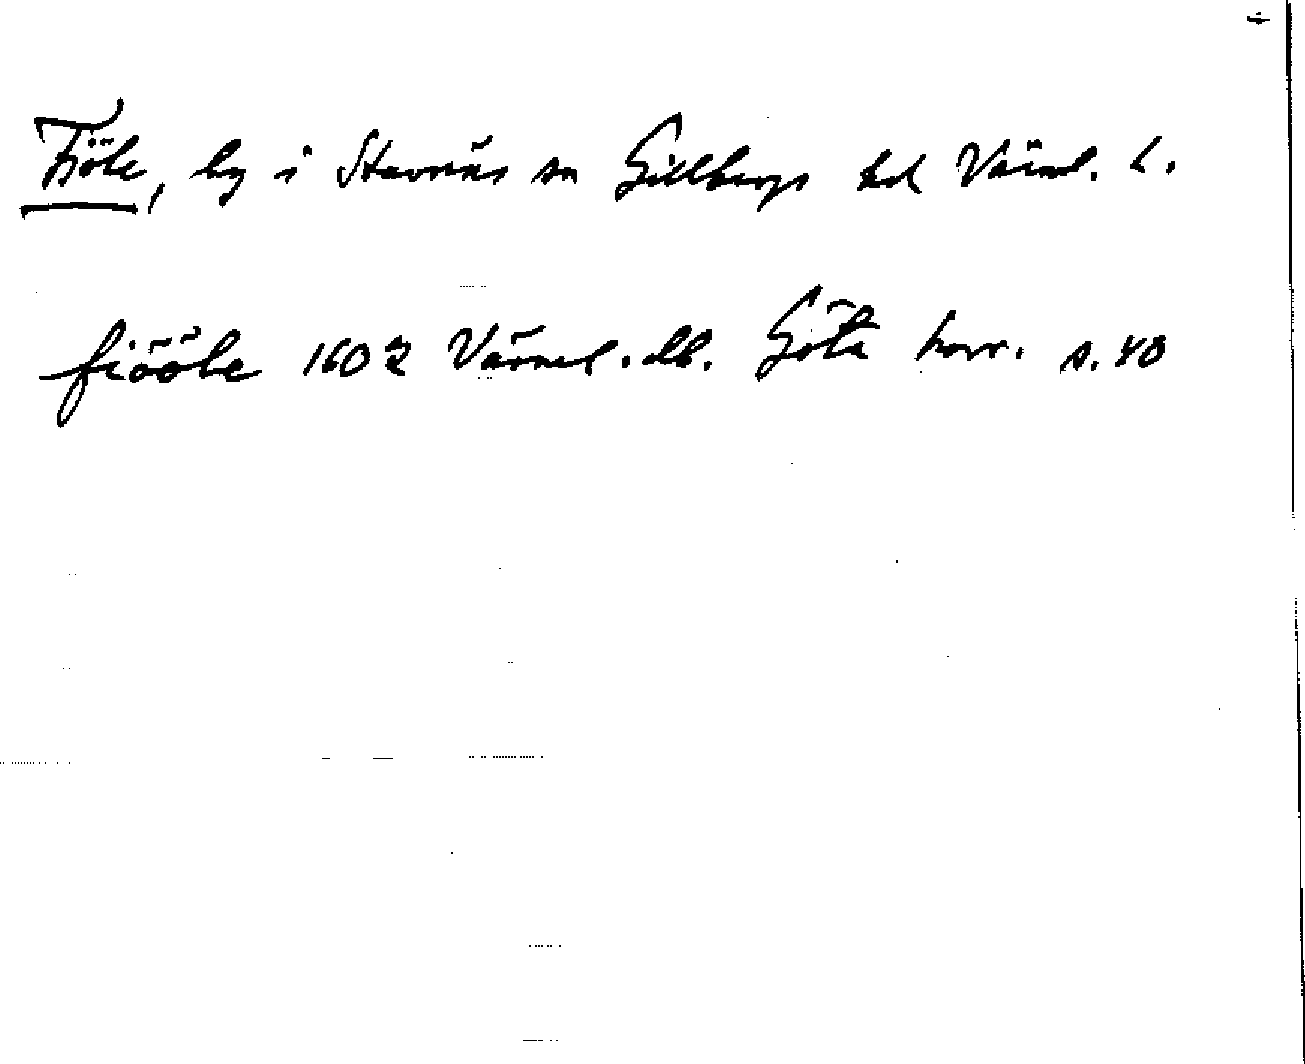 Fjöle, by i Stavnäs sn Gillbergs hd Värml. l.
fiööle 1602 Värml. db. Göta hovr. s. 40